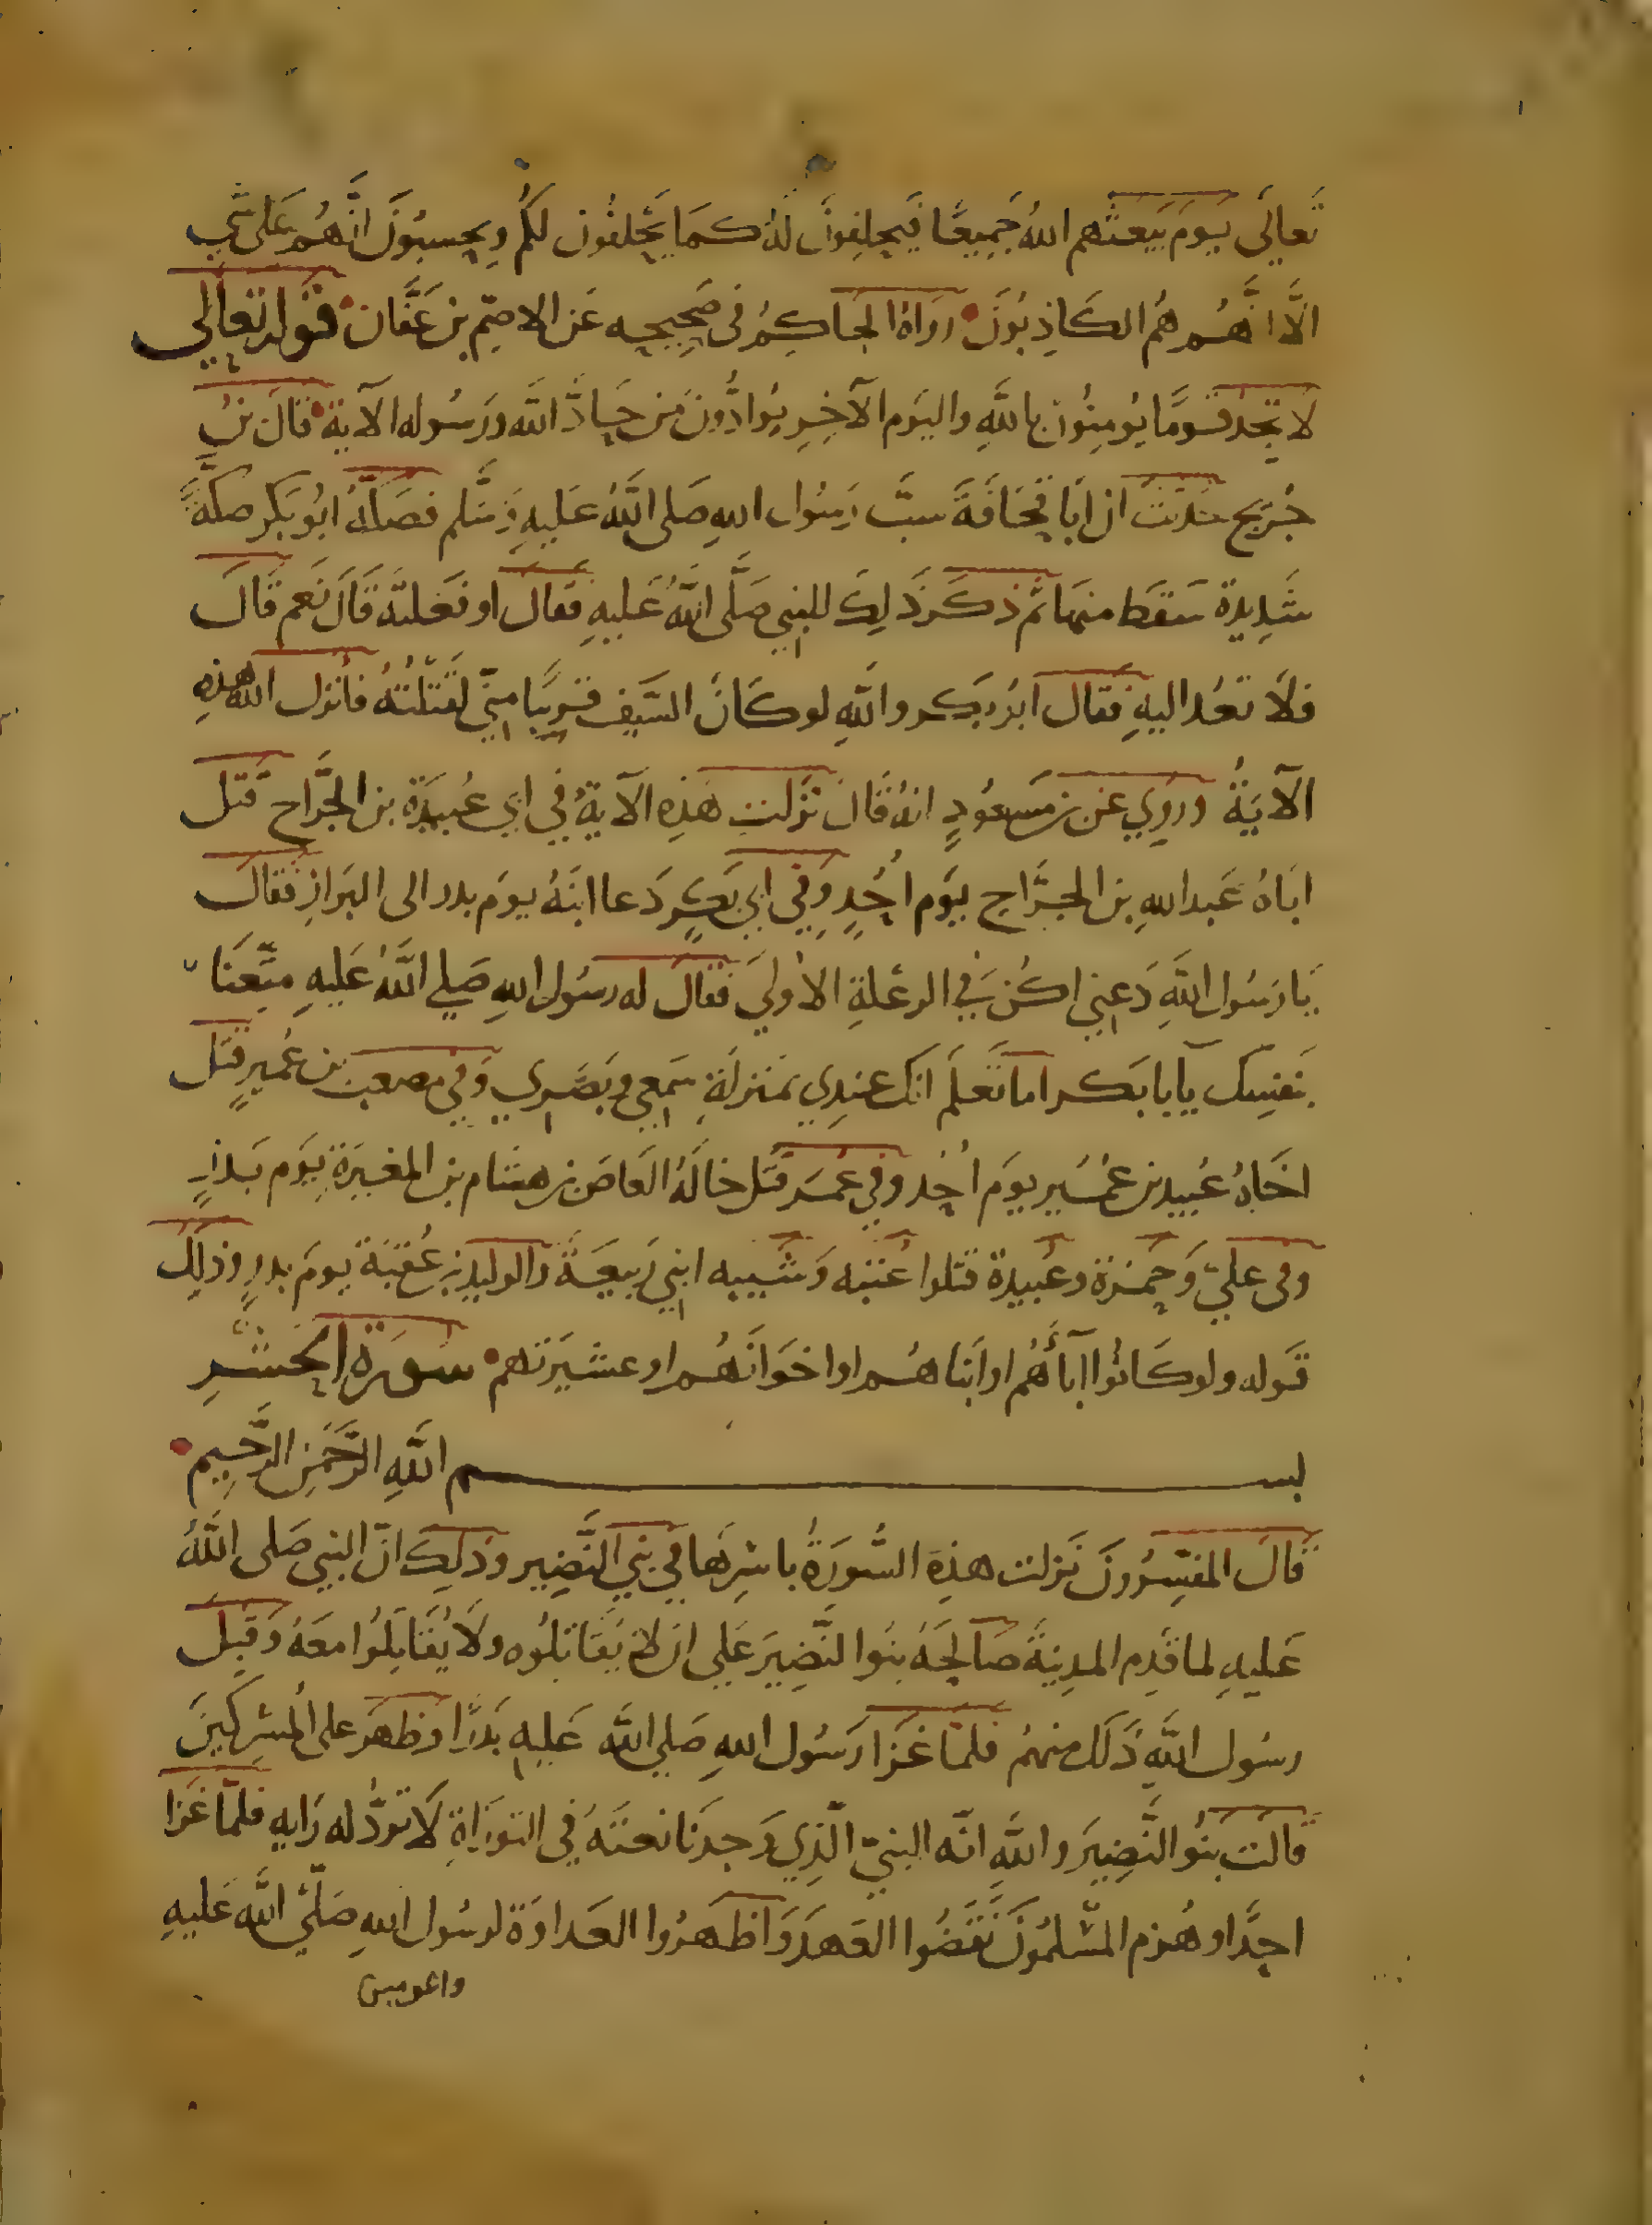 تعالى يوم يبعثهم الله جميعًا فيحلفون له كما يحلفون لكم ويحسبون انهم على شي
الا انهم هم الكاذبون رواه الحاكم في صحيحه عن الاصم بن عفان قوله تعالى
لا تجد قومًا يومنون بالله واليوم الآخر يوادون من حاد الله ورسوله الآية قال بن
جريج حدثت ان ابا قحافة سب رسول الله صلى الله عليه وسلم فصكه ابو بكر صكة
شديدة سقط منها ثم ذكر ذلك للنبي صلى الله عليه فقال او فعلته قال نعم قال
فلا تعد اليه فقال ابو بكر والله لو كان السيف قريبا مني لقتلته فانزل الله هذه
الآية وروي عن بن مسعود انه قال نزلت هذه الآية في ابي عبيدة بن الجراح قتل
اباه عبد الله بن الجراح يوم أحد وفي ابي بكر دعا ابنه يوم بدر الى البراز فقال
يا رسول الله دعني اكن في الرعلة الاولي فقال له رسول الله صلي الله عليه متعنا
بنفسك يآبا بكر اما تعلم انك عندي بمنزلة سمعي وبصري وفي مصعب بن عمير قتل
اخاه عبيد بن عمير يوم أحد وفي عمر قتل خاله العاص بن هشام بن المغيرة يوم بدر
وفي علي وحمزة وعبيدة قتلوا عتبه وشيبه ابني ربيعة والوليد بن عقبة يوم بدر وذلك
قوله ولو كانوا اباأهم او ابناهم او اخوانهم او عشيرتهم سورة الحشر
بسم الله الرحمن الرحيم
قال المفسرون نزلت هذه السورة باسرها في بني النضير وذلك ان النبي صلى الله
عليه لما قدم المدينة صالحه بنوا النضير علي ان لا يقاتلوه ولا يقاتلوا معه وقبل
رسول الله ذلك منهم فلما غزا رسول الله صلي الله عليه بدرا وظهر على المشركين
قالت بنوا النضير والله انه النبي الذي وجدنا نعته في التوراة لا ترد له رايه فلما غزا
احدا وهزم المسلمون نقضوا العهد واظهروا العداوة لرسول الله صلي الله عليه